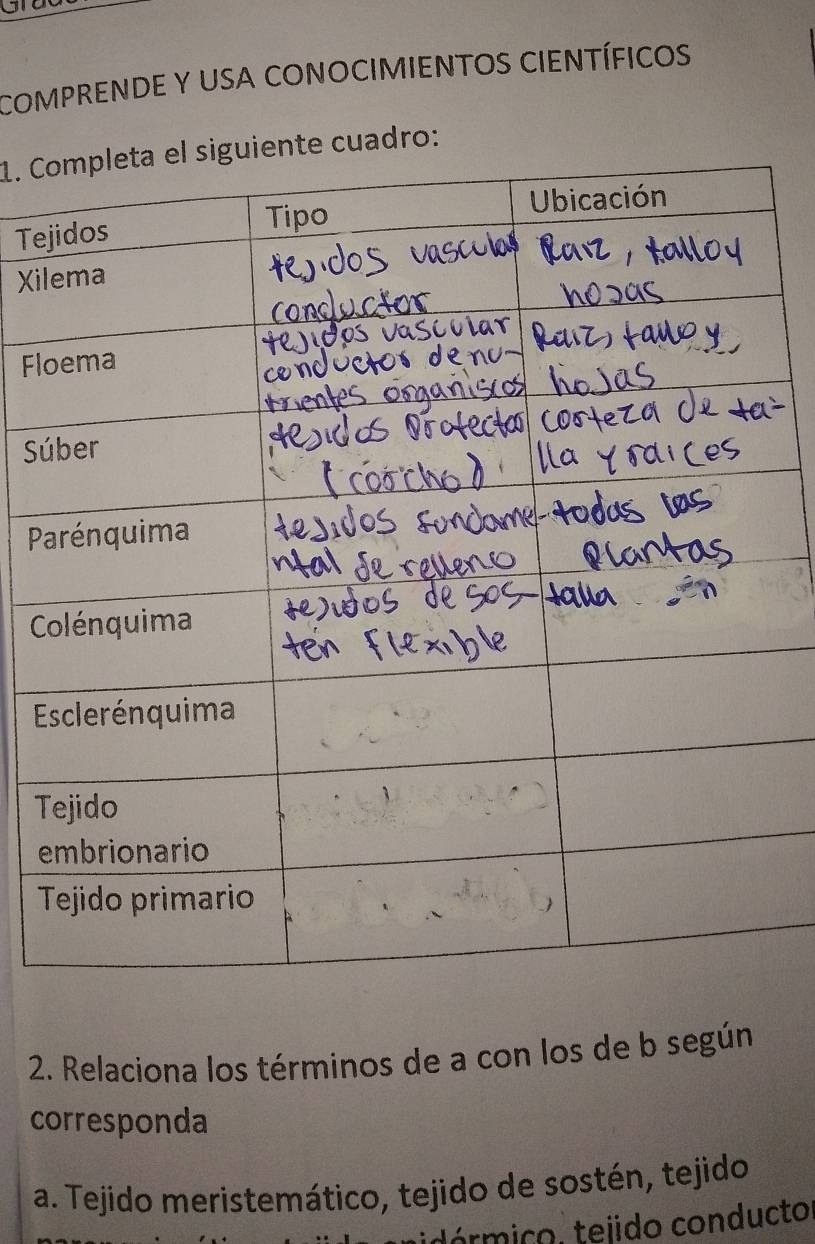 COMPRENDE Y USA CONOCIMIENTOS CIENTÍFICOS
1. Completa el siguiente cuadro:
Tejidos Tipo Ubicación
Xilema
tejidos vascular
conductor
Raiz, talloy
hojas
Floema
tejidos vascular
conductor de nu-
trientes organiscos
Raiz, talloy
hojas
Súber
tejidos protector
(corcho)
corteza de ta-
lla y raices
Parénquima
tejidos fundame-
ntal de relleno
todas las
plantas
Colénquima
tejidos de sos-
ten flexible
talla en
Esclerénquima
Tejido
embrionario
Tejido primario
2. Relaciona los términos de a con los de b según
corresponda
a. Tejido meristemático, tejido de sostén, tejido
tejido conductor